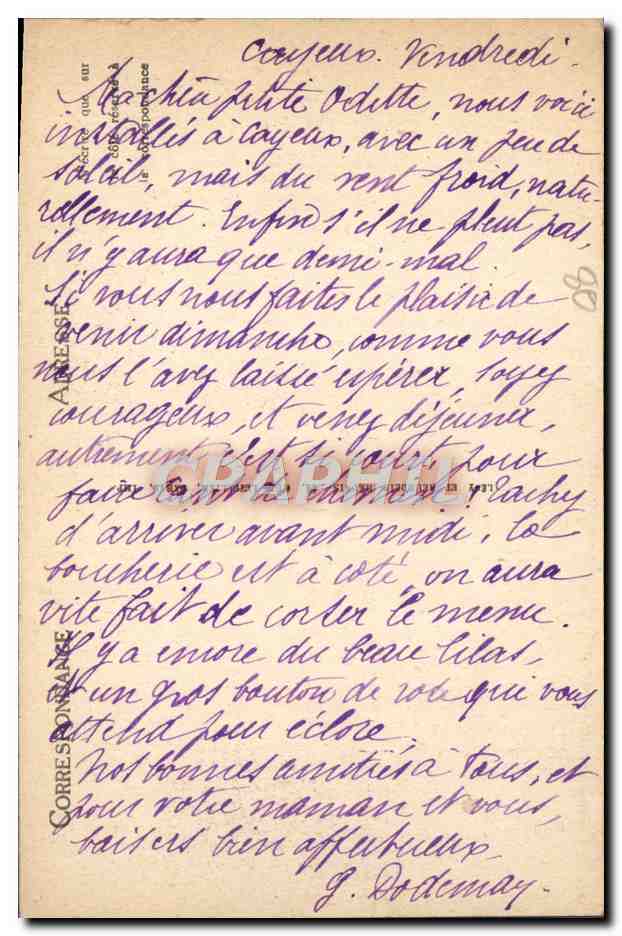 Cayeux. Vendredi.
Ma chère petite Odette, nous voici
installés à Cayeux, avec un peu de
soleil, mais du vent froid, natu-
rellement. Enfin s'il ne pleut pas,
il n'y aura que demi-mal.
Si vous nous faites le plaisir de
venir dimanche, comme vous
nous l'avez laissé espérer, soyez
courageux, et venez déjeuner,
autrement c'est si court, pour
faire Tachez
d'arriver avant midi, la
boucherie est à côté, on aura
vite fait de corser le menu.
Il y a encore du beau lilas,
et un gros bouton de rose qui vous
attend pour éclore.
Nos bonnes amitiés à tous, et
pour votre maman et vous,
baisers bien affectueux
G. Dodemay
CORRESPONDANCE
ADRESSE
N'écrire que sur
le côté réservé à
la correspondance
CPARHIL
80